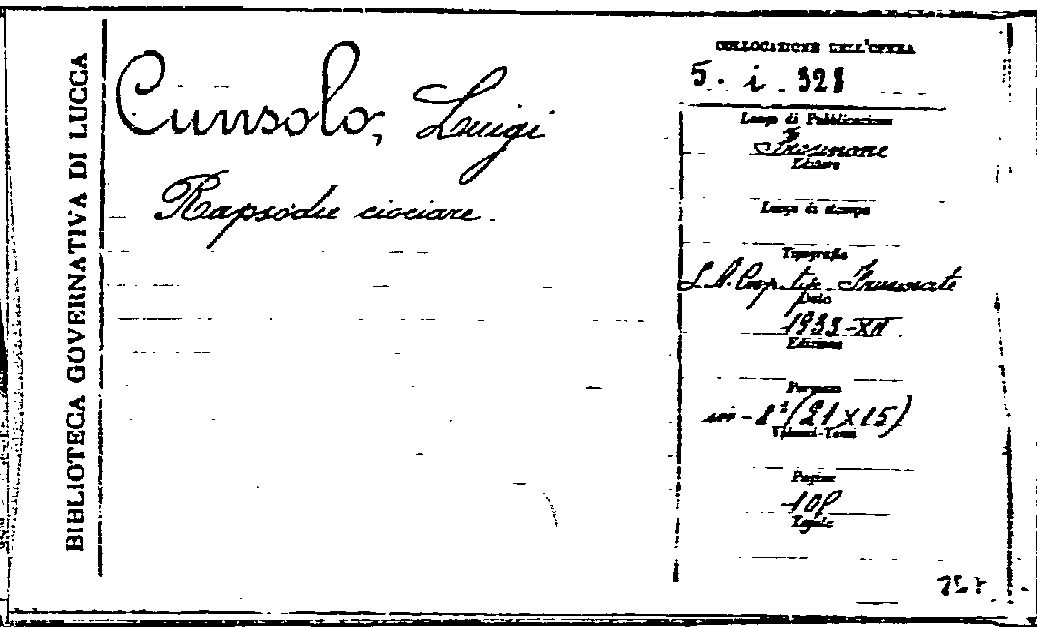 BIBLIOTECA GOVERNATIVA DI LUCCA
Cunsolo, Luigi
Rapsodie ciociare.
COLLOCAZIONE DELL'OPERA
5. i. 328
Luogo di Pubblicazione
Frosinone
Editore
Luogo di stampa
Tipografia
S.A. Coop. tip. Frusinate
Data
1933-XII
Edizione
Formato
in-8° (21x15)
Volumi-Tomi
Pagine
108
Tavole